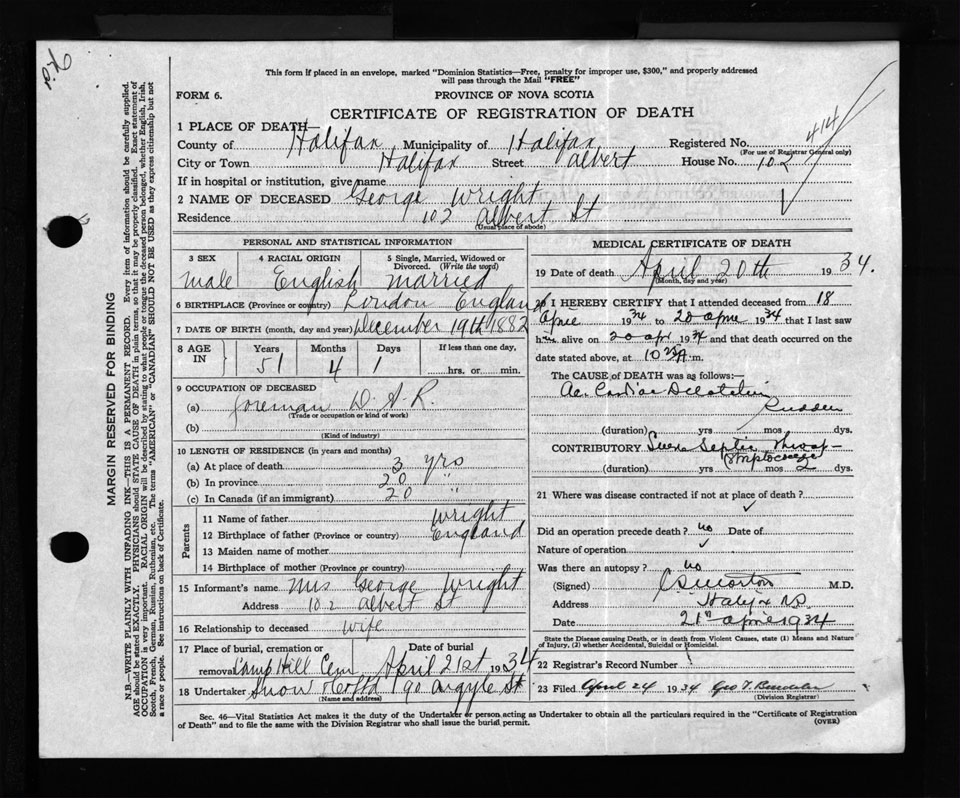 This form if placed in an envelope, marked "Dominion Statistics—Free, penalty for improper use, $300," and properly addressed
will pass through the Mail "FREE"
FORM 6.
PROVINCE OF NOVA SCOTIA
CERTIFICATE OF REGISTRATION OF DEATH
414
1 PLACE OF DEATH—
County of Halifax Municipality of Halifax Registered No.
(For use of Registrar General only)
City or Town Halifax Street Albert House No. 102
If in hospital or institution, give name
2 NAME OF DECEASED George Wright
Residence 102 Albert St
(Usual place of abode)
PERSONAL AND STATISTICAL INFORMATION
3 SEX 4 RACIAL ORIGIN 5 Single, Married, Widowed or Divorced. (Write the word)
Male English Married
6 BIRTHPLACE (Province or country) London England
7 DATE OF BIRTH (month, day and year) December 19th 1882
8 AGE IN Years Months Days If less than one day,
51 4 1 hrs. or min.
9 OCCUPATION OF DECEASED
(a) foreman D.A.R.
(Trade or occupation or kind of work)
(b)
(Kind of industry)
10 LENGTH OF RESIDENCE (in years and months)
(a) At place of death 3 yrs
(b) In province 20 "
(c) In Canada (if an immigrant) 20 "
Parents
11 Name of father Wright
12 Birthplace of father (Province or country) England
13 Maiden name of mother
14 Birthplace of mother (Province or country)
15 Informant's name Mrs George Wright
Address 102 Albert St
16 Relationship to deceased wife
17 Place of burial, cremation or Date of burial
removal Camp Hill Cem April 21st 1934
18 Undertaker Snow & Co Ltd 90 Argyle St
(Name and address)
MEDICAL CERTIFICATE OF DEATH
19 Date of death April 20th 1934.
(Month, day and year)
20 I HEREBY CERTIFY that I attended deceased from 18
April 1934 to 20 April 1934 that I last saw
him alive on 20 Apr 1934 and that death occurred on the
date stated above, at 10 A.m.
The CAUSE of DEATH was as follows:—
Ac. Cardiac Dilatation
Sudden
(duration) yrs mos dys.
CONTRIBUTORY Septic Throat
(Streptococcic)
(duration) yrs mos 2 dys.
21 Where was disease contracted if not at place of death?
Did an operation precede death? no Date of
Nature of operation
Was there an autopsy? no
(Signed) M.D.
Address Halifax NS.
Date 21st April 1934
State the Disease causing Death, or in death from Violent Causes, state (1) Means and Nature of Injury, (2) whether Accidental, Suicidal or Homicidal.
22 Registrar's Record Number
23 Filed April 24 1934 Geo T.
(Division Registrar)
Sec. 46—Vital Statistics Act makes it the duty of the Undertaker or person acting as Undertaker to obtain all the particulars required in the "Certificate of Registration
of Death" and to file the same with the Division Registrar who shall issue the burial permit.
(OVER)
MARGIN RESERVED FOR BINDING
N.B.—WRITE PLAINLY WITH UNFADING INK—THIS IS A PERMANENT RECORD. Every item of information should be carefully supplied.
AGE should be stated EXACTLY. PHYSICIANS should STATE CAUSE OF DEATH in plain terms, so that it may be properly classified. Exact statement of
OCCUPATION is very important. RACIAL ORIGIN will be described by stating to what people or tongue the deceased person belonged, whether English, Irish,
Scotch, French, German, Russian, Ruthenian, etc. The terms "AMERICAN" or "CANADIAN" SHOULD NOT BE USED as they express citizenship but not
a race or people. See instructions on back of Certificate.